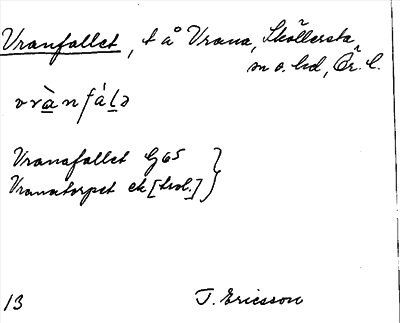 Vranfallet, t å Vrana, Sköllersta
sn o. hd, Ör. l.
vrànfálə
Vranafallet G65
Vranatorpet ek [trol.] }
13 T. Ericsson